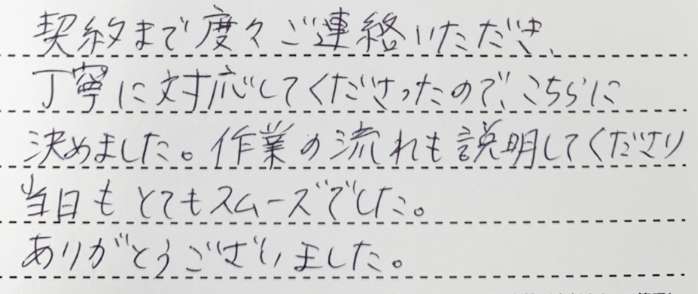 契約まで度々ご連絡いただき、
丁寧に対応してくださったので、こちらに
決めました。作業の流れも説明してくださり
当日もとてもスムーズでした。
ありがとうございました。